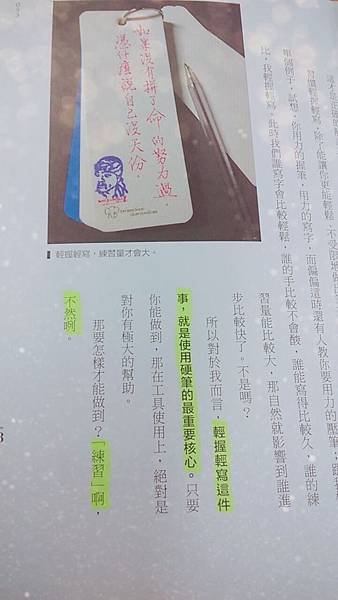 習慣輕握輕寫，除了能讓你更能輕鬆、不受
個例子，試想，你用力的握筆，用力的寫字，而偏偏這時還有人教你要用力的壓筆；跟我
比，我輕握輕寫。此時我們誰寫字會比較輕鬆，誰的手比較不會酸，誰能寫得比較久，誰的練
習量能比較大，那自然就影響到誰進
步比較快了。不是嗎？
所以對於我而言，輕握輕寫這件
事，就是使用硬筆的最重要核心。只要
你能做到，那在工具使用上，絕對是
對你有極大的幫助。
那要怎樣才能做到？「練習」啊，
不然咧。
如果沒有拼了命的努力過，
憑什麼說自己沒天份．
輕握輕寫，練習量才會大。
053